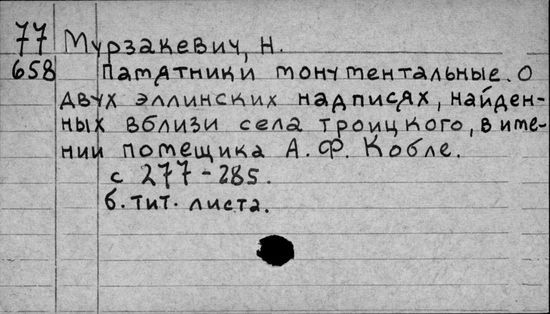 77 Мурзакевич, Н.
658 Памятники монументальные. О
двух эллинских надписях, найден-
ных вблизи села Троицкого, в име-
нии помещика А. Ф. Кобле.
с 277-285.
б. тит. листа.